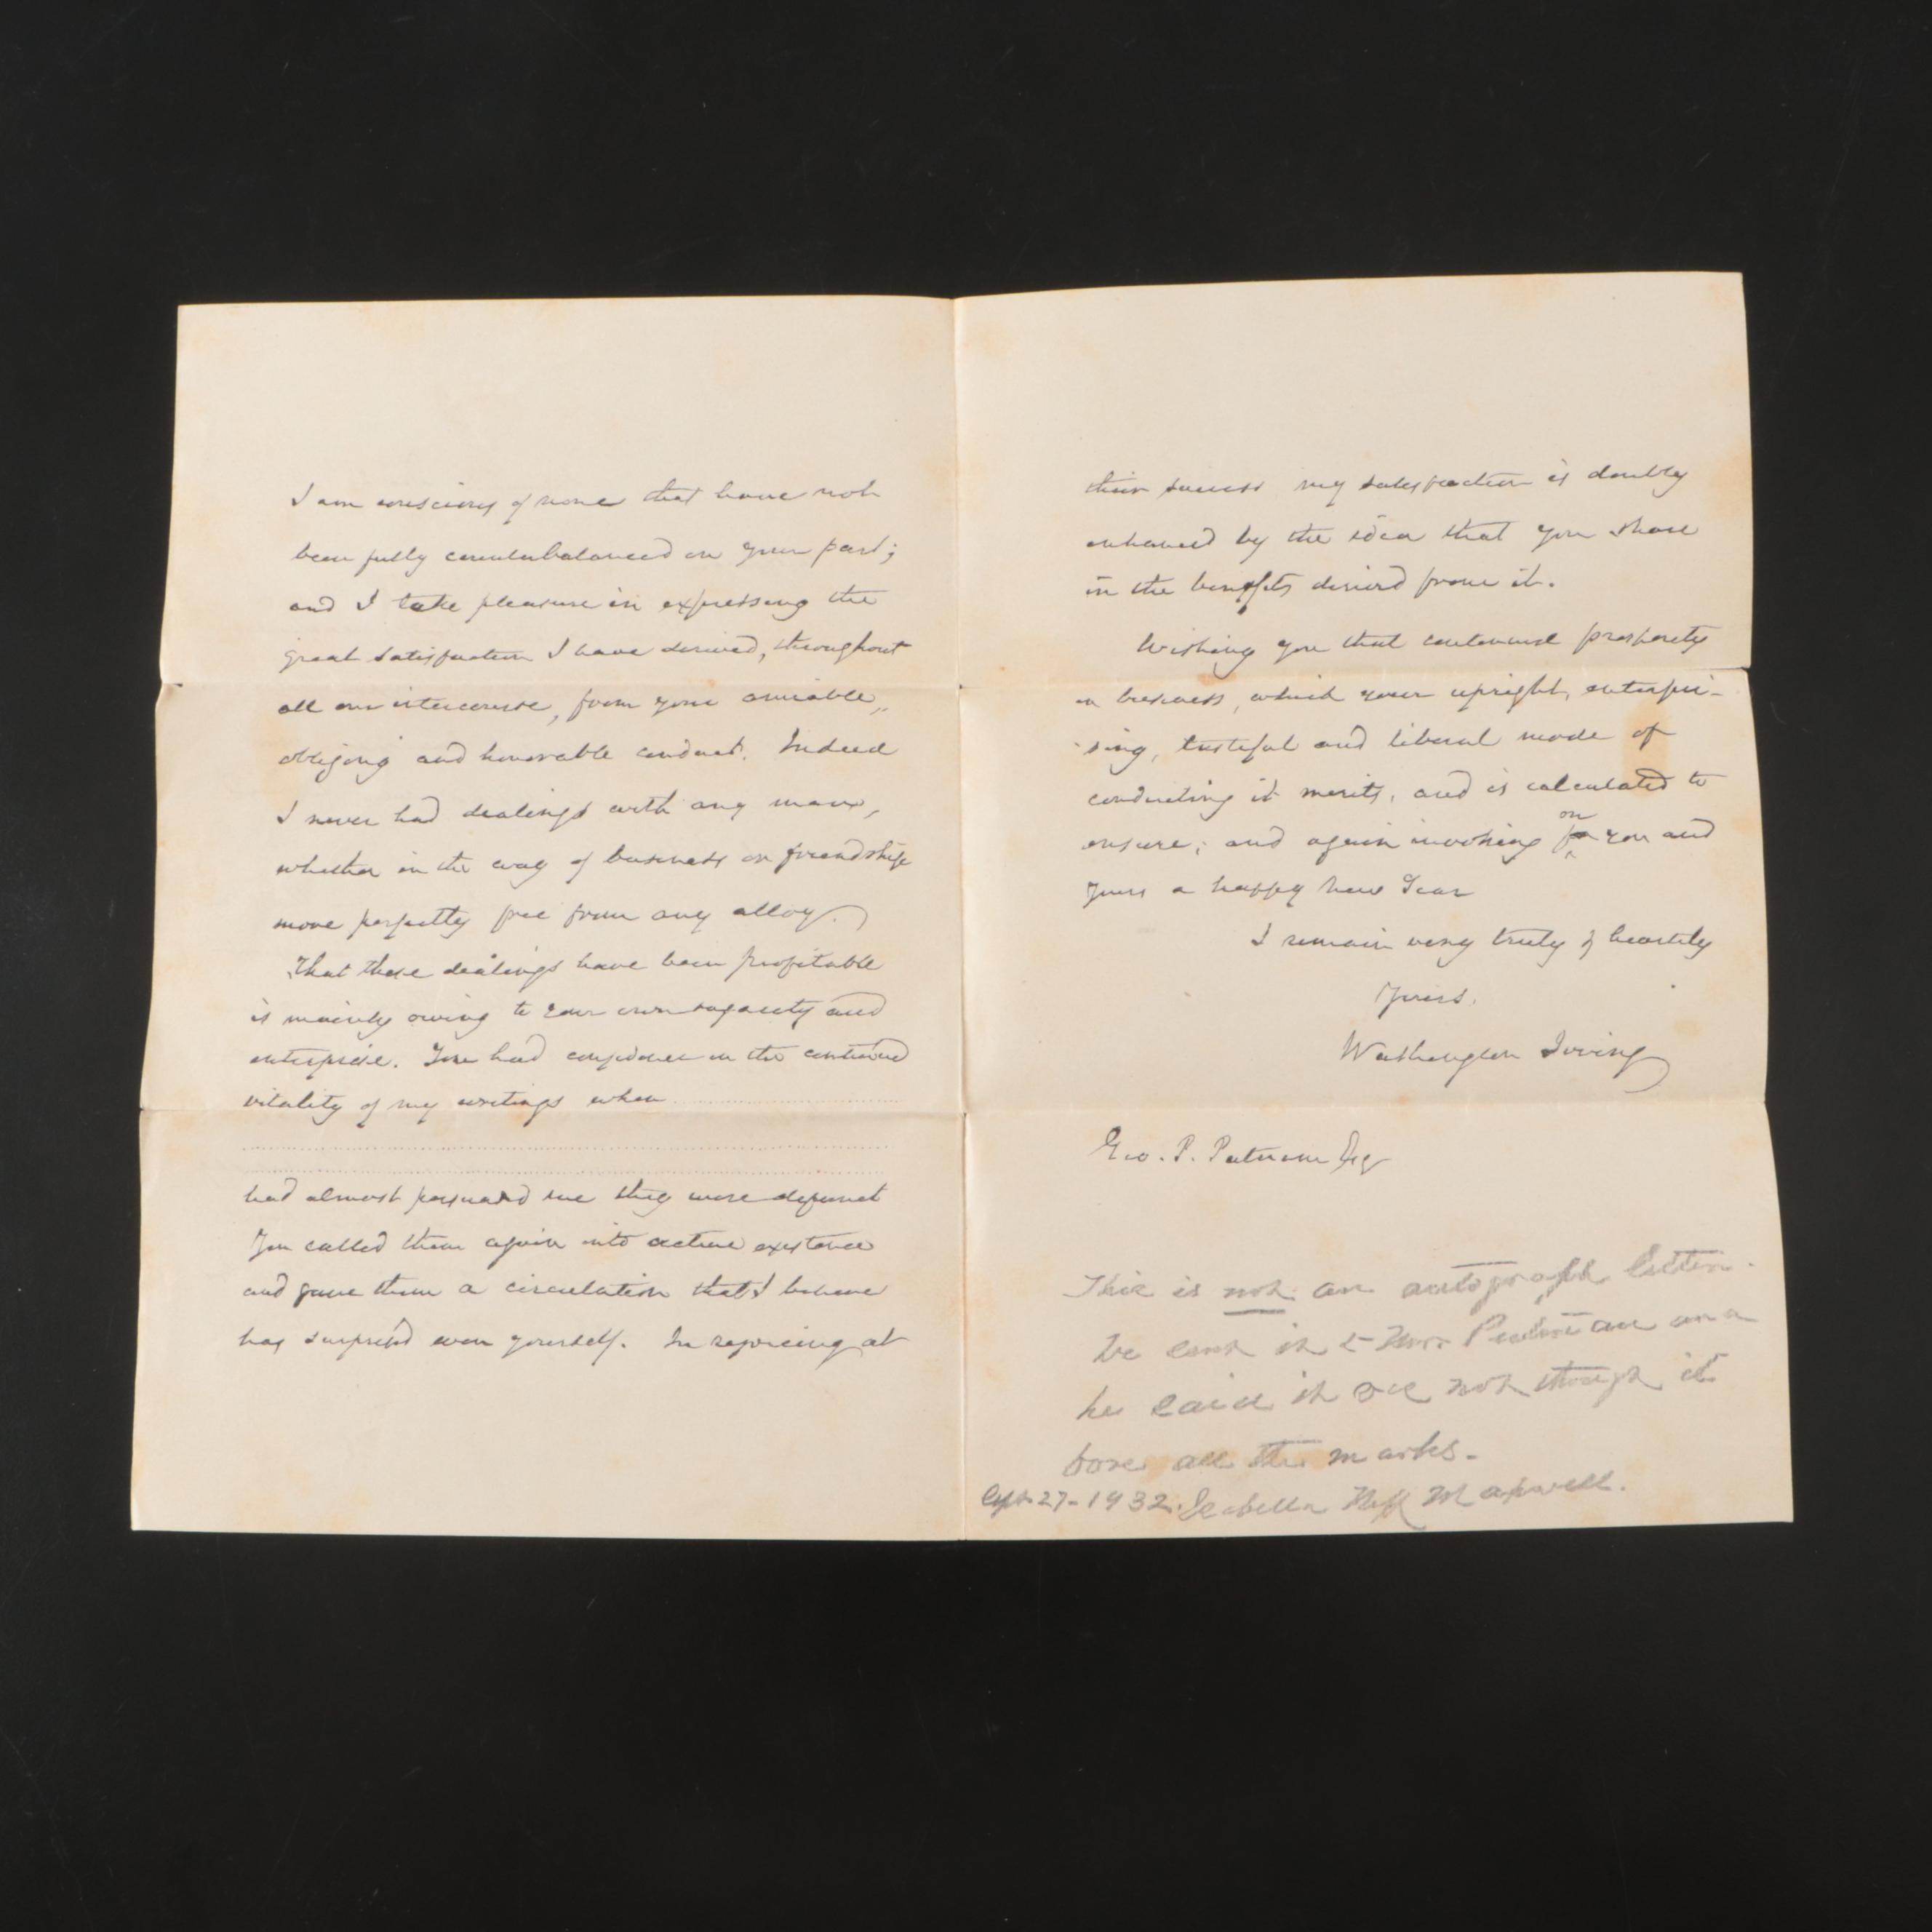 I am conscious of none that have not
been fully counterbalanced on your part;
and I take pleasure in expressing the
great satisfaction I have derived, throughout
all our intercourse, from your amiable,
obliging and honorable conduct. Indeed
I never had dealings with any man,
whether in the way of business or friendship
more perfectly free from any alloy.
That these dealings have been profitable
is mainly owing to your own sagacity and
enterprise. You had confidence in the continued
vitality of my writings when ....................
........................................
........................................
had almost persuaded me they were defunct
You called them again into active existence
and gave them a circulation that I believe
has surprised even yourself. In rejoicing at
their success my satisfaction is doubly
enhanced by the idea that you share
in the benefits derived from it.
Wishing you that continued prosperity
in business, which your upright, enterpri-
-sing, tasteful and liberal mode of
conducting it merits, and is calculated to
ensure; and again invoking on you and
yours a happy New Year
I remain very truly & heartily
Yours.
Washington Irving
Geo. P. Putnam Esq
This is not an autograph letter.
We sent it to Mr. Putnam and
he said it was not though it
bore all the marks.
Sept. 27-1932. Isabella Maxwell.